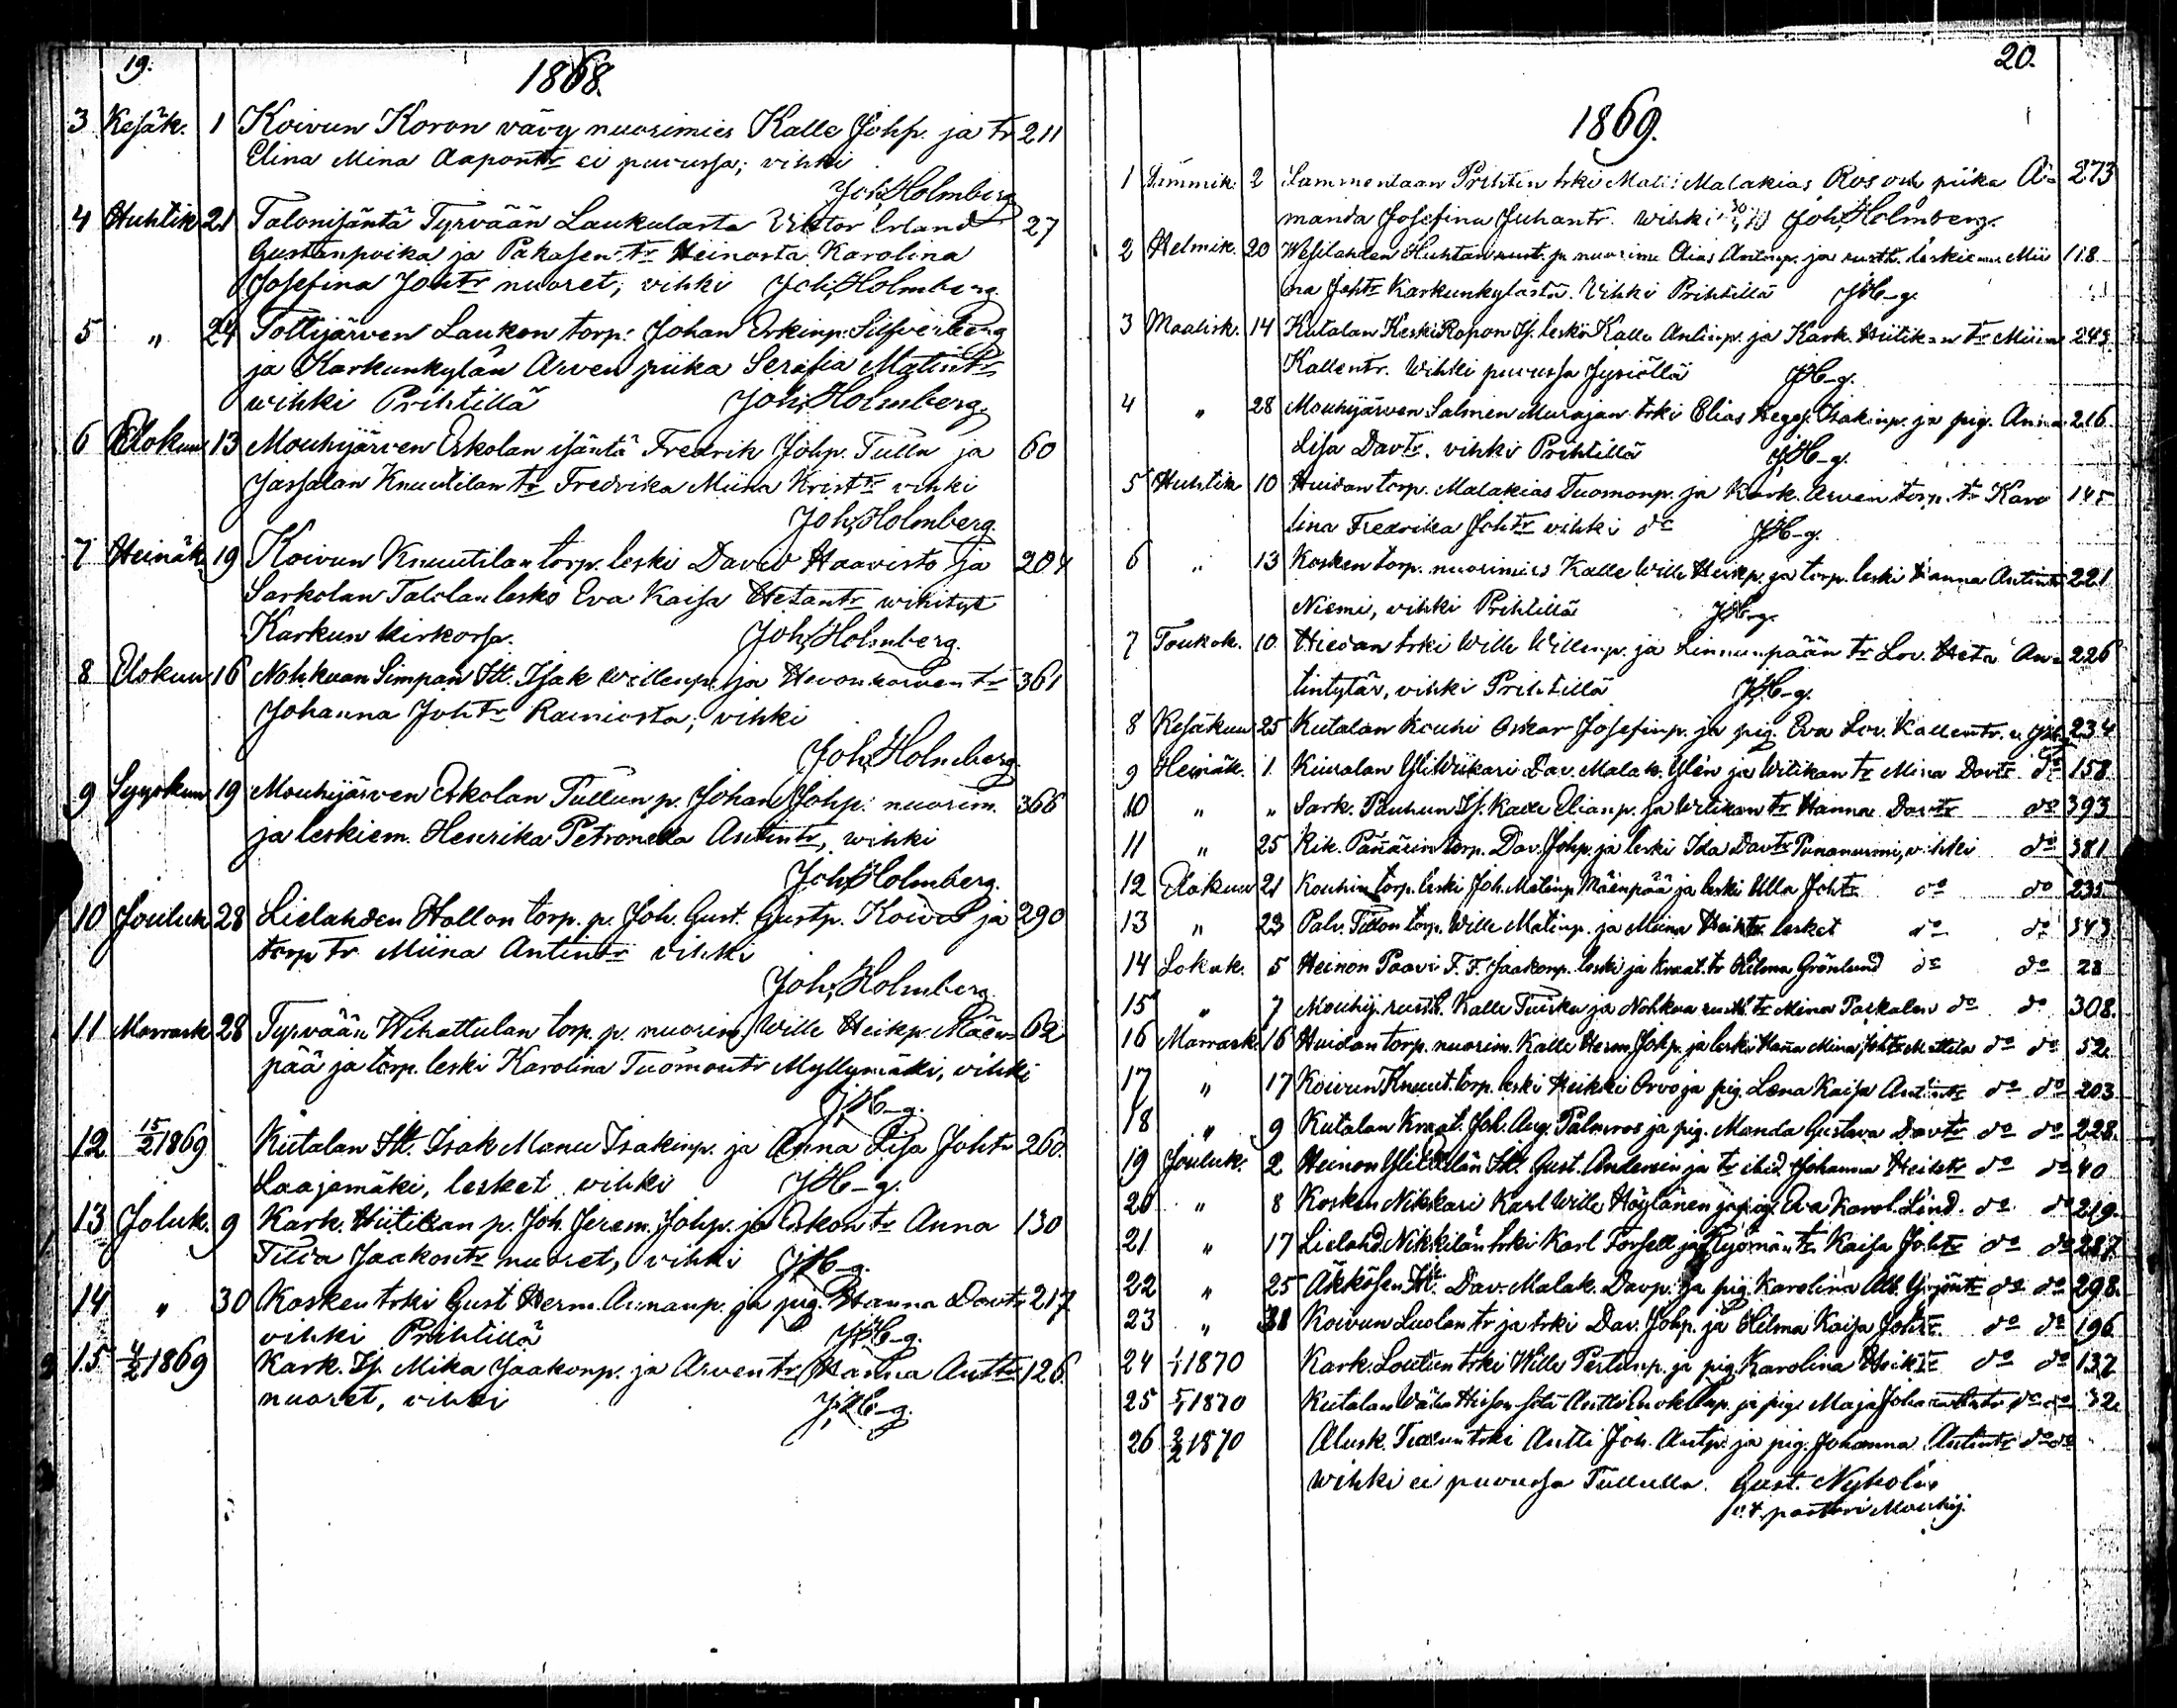 19.
1868.
3 Kesäk. 1 Koivun Koron vävy nuorimies Kalle Johp. ja tr 211
Elina Mina Aapontr ei puvussa; vihki
Joh. Holmberg
4 Huhtik 21 Talonisäntä Tyrvään Laukulasta Viktor Erland 27
Gustanpoika ja Pakasen tr Heinosta Karolina
Josefina Johtr nuoret; vihki Joh. Holmberg.
5 " 24 Tottijärven Laukon torp. Johan Erkinp. Silfverberg
ja Karkunkylän Arven piika Serafia Matintr
vihki Prihtillä Joh. Holmberg.
6 Elokuu 13 Mouhijärven Eskolan isäntä Fredrik Johp. Tulla ja 60
Jassalan Knuutilan tr Fredrika Miina Kristtr vihki
Joh. Holmberg.
7 Heinäk 19 Koivun Knuutilan torp. leski David Haavisto ja 204
Sarkolan Talolan lesko Eva Kaisa Hetantr wihityt
Karkun kirkossa. Joh. Holmberg.
8 Elokuu 16 Nohkuan Simpan Itl. Isak Willenp. ja Hevonkorven tr 361
Johanna Johtr Rainiosta; vihki
Joh. Holmberg.
9 Syyskuu 19 Mouhijärven Eskolan Tullun p. Johan Johp. nuorim. 366
ja leskiem. Henrika Petronella Antintr, wihki
Joh. Holmberg.
10 Jouluk 28 Lielahden Hollon torp. p. Joh. Gust. Gustp. Koivu ja 290
torp tr Miina Antintr vihki
Joh. Holmberg.
11 Marrask 28 Tyrvään Wihattulan torp. p. nuorim. Wille Heikp. Mäen= 62
pää ja torp. leski Karolina Tuomontr Myllymäki, vihki
JH-g.
12 15/2 1869 Kutalan Itl. Isak Manu Isakinp. ja Anna Lisa Johtr 260.
Laajamäki, lesket vihki JH-g.
13 Joluk. 9 Kark. Hiitikan p. Joh. Jerem. Johp. ja Eskon tr Anna 130
Tilda Jaakontr nuoret, vihki JH-g.
14 " 30 Kosken trki Gust Herm. Annanp. ja pig. Hanna Davtr 217
vihki Prihtillä JH-g.
15 4/2 1869 Kark. Is. Mika Jaakonp. ja Arven tr Hanna Anttr 126
nuoret, vihki JH-g.
20.
1869.
1 Tammik. 2 Sammentaan Prihtin trki Matti Malakias Ros och piika A= 273
manda Josefina Juhantr. wihki Joh. Holmberg.
2 Helmik. 20 Wesilahden Huhtan rust. p. nuorim. Elias Antinp. ja rustt. leskiem. Mii 118
na Johtr Karkunkylästä. Vihki Prihtillä JH-g.
3 Maalisk. 14 Kutalan Keski Ropon Is. leski Kalle Antinp. ja Kark. Hiitikan tr Miina 245
Kallentr. Wihki puvussa JH-g.
4 " 28 Mouhijärven Salmen Murajan trki Elias Isakinp. ja pig. Anna 216.
Lisa Davtr. vihki Prihtillä JH-g.
5 Huhtik 10 Huidan torp. Malakias Tuomonp. ja Kark. Arven torp. tr Karo 145
lina Fredrika Johtr vihki do JH-g.
6 " 13 Kosken torp. nuorimies Kalle Wille Heikp. ja torp. leski Hanna Antintr 221
Niemi, vihki Prihtillä JH-g.
7 Toukok. 10 Hiedan trki Wille Willenp. ja Linnunpään tr Lov. Heta An= 226
tintytär, vihki Prihtillä JH-g.
8 Kesäkuu 25 Kutalan Kouhi Oskar Josefinp. ja pig. Eva Lov. Kallentr. v. JH-g 234
9 Heinäk. 1 Kiuralan YliWiikari Dav. Malak. Ylén ja Witikan tr Mina Davtr do 158
10 " " Sark. Pouhun Is. Kalle Elianp. ja Witikan tr Hanna Davtr do 393
11 " 25 Kik. torp. Dav. Johp. ja leski Ida Davtr Punanurmi, vihki do 381
12 Elokuu 21 Kouhin torp. leski Joh. Matinp. Mäenpää ja leski Ulla Johtr do do 235
13 " 23 Palv. torp. Wille Matinp. ja Miina Heiktr lesket do do 343
14 Lokak. 5 Heinon Paavi F. F. Jaakonp. leski ja kraat. tr Hilma Grönlund do do 28
15 " 7 Mouhij. rustt. Kalle Tuisku ja Nohkua rustt. tr Mina Paskalan do do 308.
16 Marrask. 16 Huidan torp. nuorim. Kalle Herm. Johp. ja leski Hanna Mina Johtr Mattila do do 52
17 " 17 Koivun Knuut. torp. leski Heikki Orvo ja pig. Lena Kaisa Antintr do do 203
18 " 9 Kutalan Kraat. Joh. Aug. Palmros ja pig. Manda Gustava Davtr do do 228.
19 Jouluk. 2 Heinon Itl. Gust. Andersin ja tr ibid Johanna Heiktr do do 40
20 " 8 Kosken Nikkari Karl Wille Höylänen ja pig. Eva Karol. Lind. do do 219.
21 " 17 Lielahd. Nikkilän trki Karl Forsell ja Ryömän tr Kaisa Johtr do do 287
22 " 25 Äkkösen Itl. Dav. Malak. Davp. ja pig. Karolina Alb. Yrjöntr do do 298.
23 " 31 Koivun Luolan tr ja trki Dav. Johp. ja Hilma Kaisa Johtr. do do 196
24 1/1 1870 Kark. Loutun trki Wille Pertunp. ja pig. Karolina Heiktr do do 137
25 5/1 1870 Kutalan Wäha Antti Enok ja pig. Maja Johanna do do 32
26 2/2 1870 Alusk. trki Antti Joh. Antp. ja pig. Johanna Antintr do do
wihki ei puvussa Tullulla. Gust. Nyholm
v.t. pastori Mouhij.